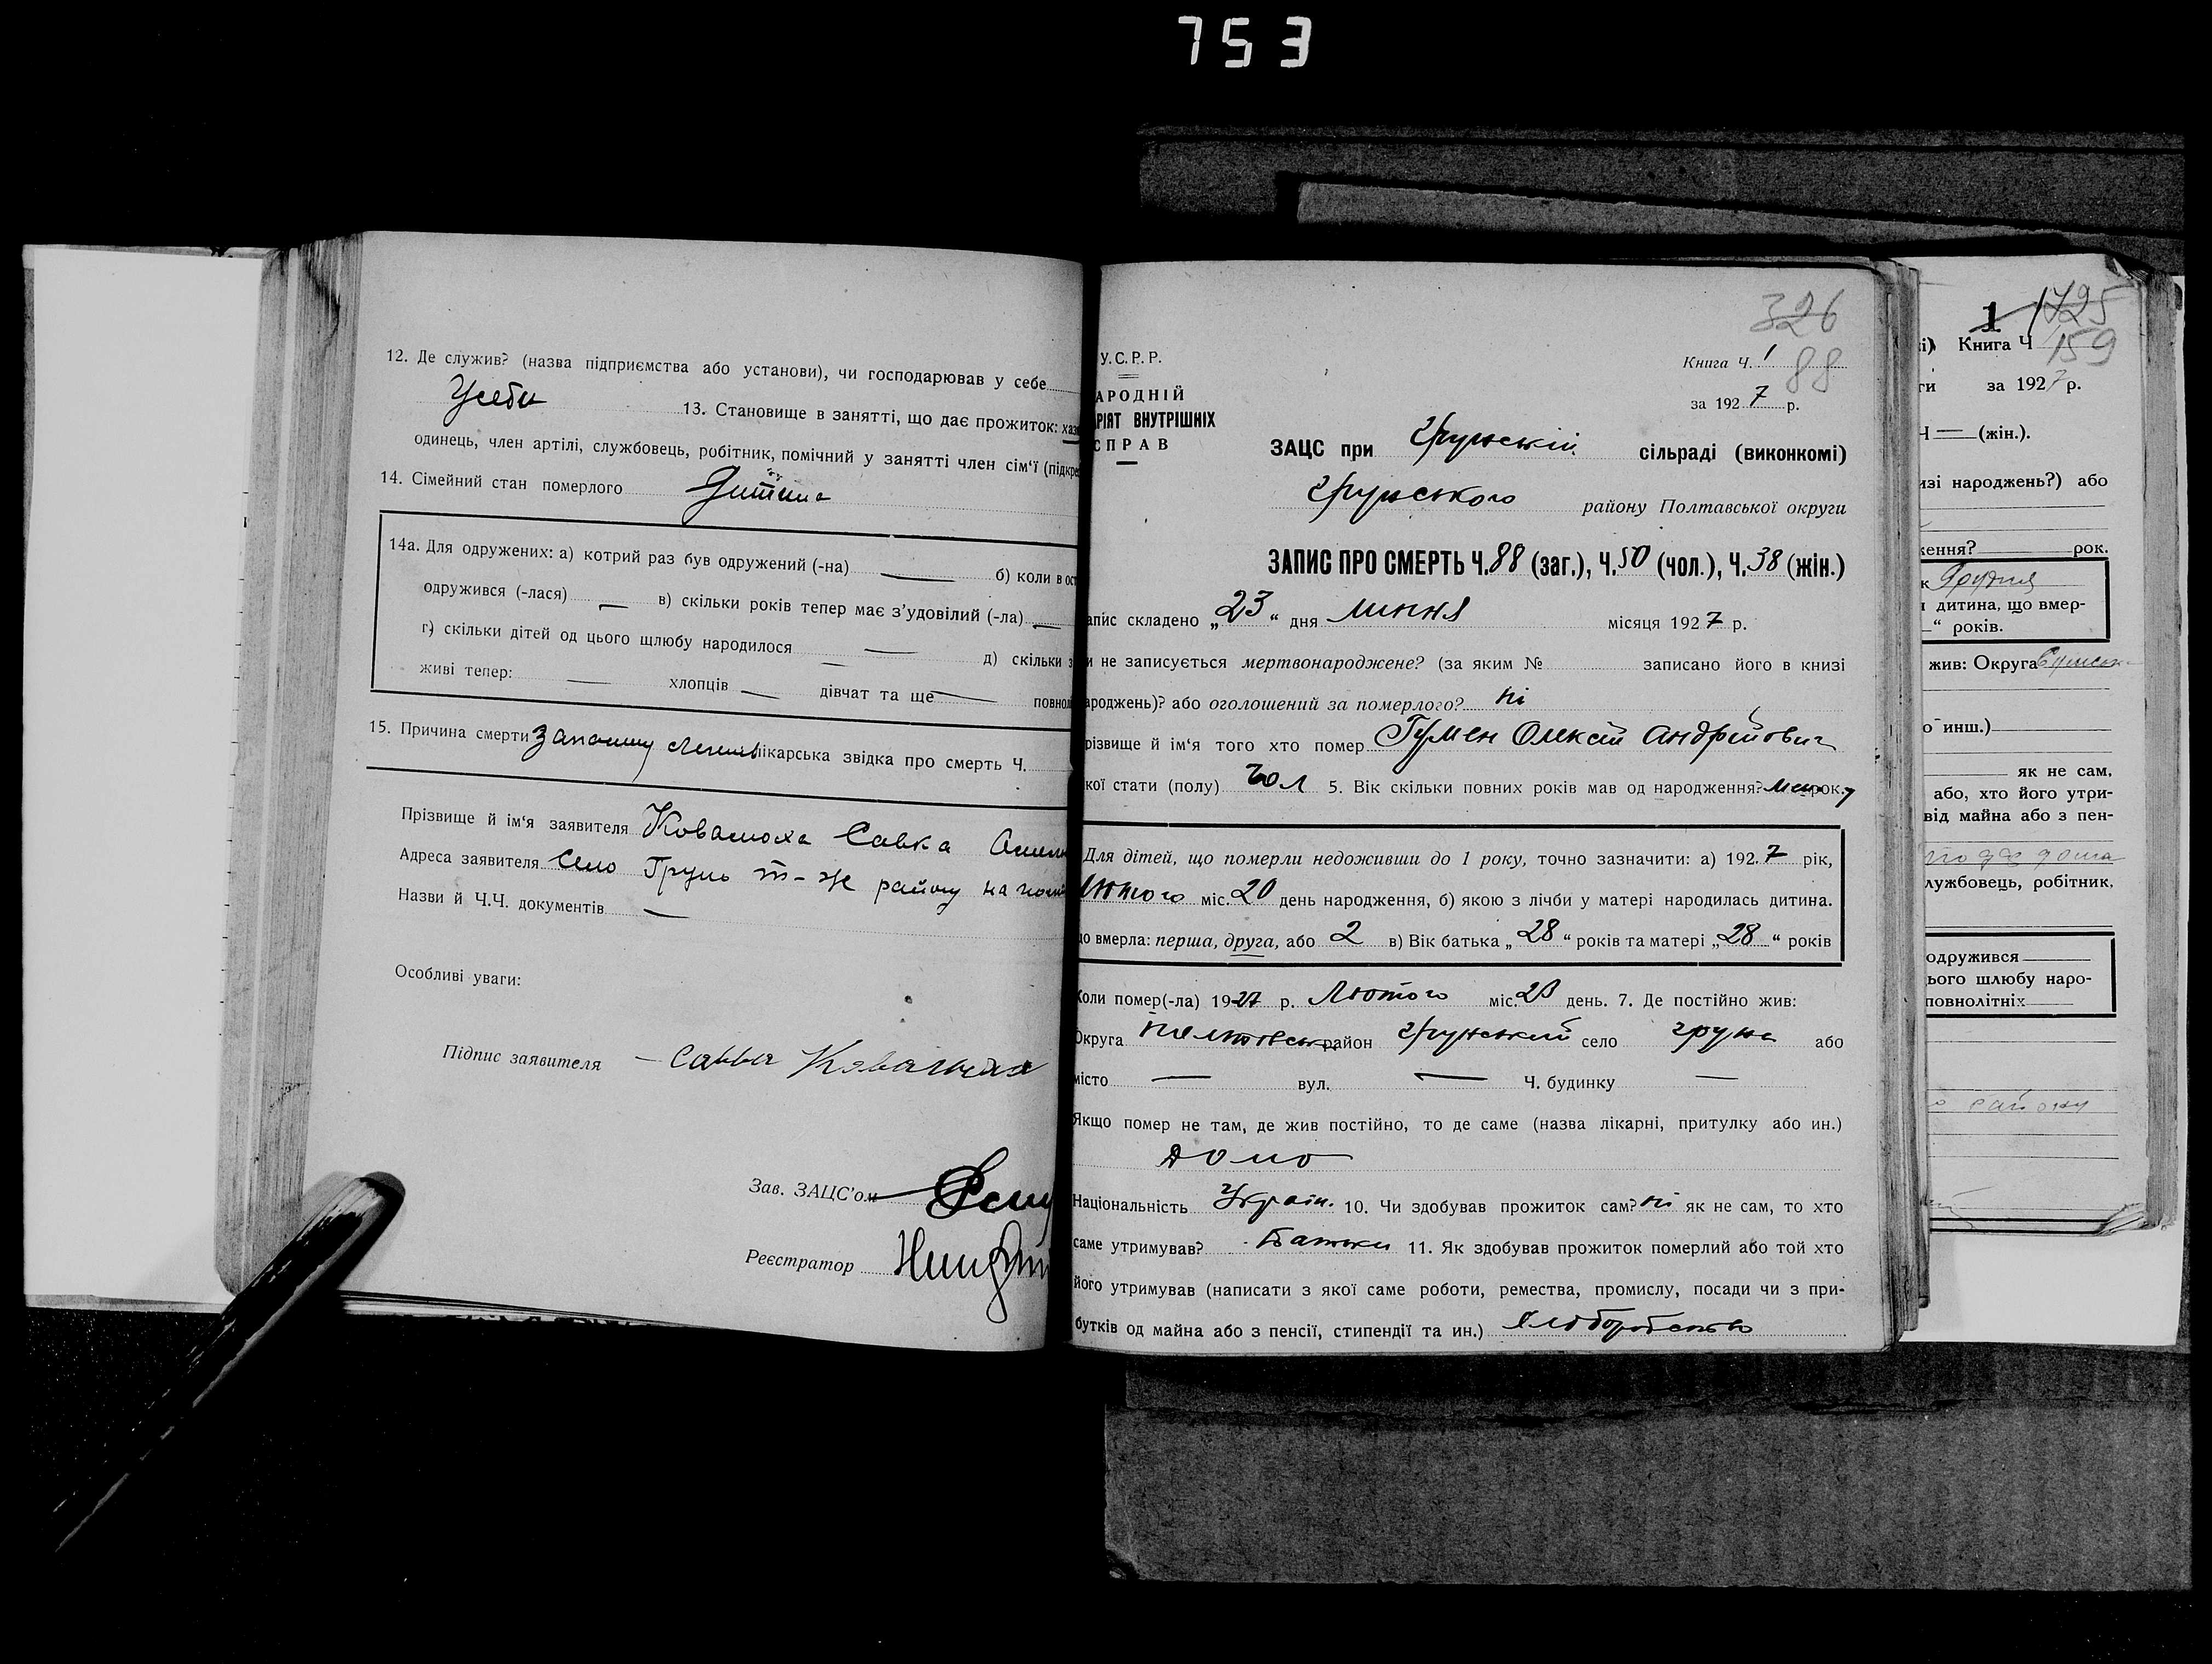 753
12. Де служив? (назва підприємства або установи), чи господарював у себе
Усебе 13. Становище в занятті, що дає прожиток: хаз
одинець, член артілі, службовець, робітник, помічний у занятті член сім'ї (підкре
14. Сімейний стан померлого Дитина
14а. Для одружених: а) котрий раз був одружений (-на) — б) коли в ост
одружився (-лася) — в) скільки років тепер має з'удовілий (-ла) —
г) скільки дітей од цього шлюбу народилося — д) скільки з
живі тепер: — хлопців — дівчат та ще — повнол
15. Причина смерти лікарська звідка про смерть Ч.
Прізвище й ім'я заявителя Ковалюха Савка
Адреса заявителя Село Грунь т-ж району
Назви й Ч.Ч. документів —
Особливі уваги:
Підпис заявителя —
Зав. ЗАЦС'ом
Реєстратор
326
У.С.Р.Р.
Книга Ч. 1
88
АРОДНІЙ
РІЯТ ВНУТРІШНІХ
СПРАВ
за 1927 р.
ЗАЦС при Грунській сільраді (виконкомі)
Грунського району Полтавської округи
ЗАПИС ПРО СМЕРТЬ Ч. 88 (заг.), Ч. 50 (чол.), Ч. 38 (жін.)
апис складено „23" дня липня місяця 1927 р.
и не записується мертвонароджене? (за яким № записано його в книзі
ароджень)? або оголошений за померлого? ні
різвище й ім'я того хто помер Гумен Олексій Андрійович
кої стати (полу) чол 5. Вік скільки повних років мав од народження? рок.
Для дітей, що померли недоживши до 1 року, точно зазначити: а) 1927 рік,
Лютого міс. 20 день народження, б) якою з лічби у матері народилась дитина.
о вмерла: перша, друга, або 2 в) Вік батька „28" років та матері „28" років
Коли помер(-ла) 1927 р. Лютого міс. день. 7. Де постійно жив:
Округа район Грунський село Грунь або
місто — вул. — Ч. будинку —
Якщо помер не там, де жив постійно, то де саме (назва лікарні, притулку або ин.)
Національність Україн. 10. Чи здобував прожиток сам? ні як не сам, то хто
саме утримував? Батьки 11. Як здобував прожиток померлий або той хто
його утримував (написати з якої саме роботи, ремества, промислу, посади чи з при-
бутків од майна або з пенсії, стипендії та ин.) Хліборобство
1 1725
і) Книга Ч 159
ти за 1927 р.
Ч — (жін.).
изі народжень?) або
ження? рок.
к Грудня
дитина, що вмер-
—" років.
жив: Округа
о инш.)
як не сам,
або, хто його утри-
від майна або з пен-
лужбовець, робітник,
одружився
ього шлюбу наро-
повнолітніх
району